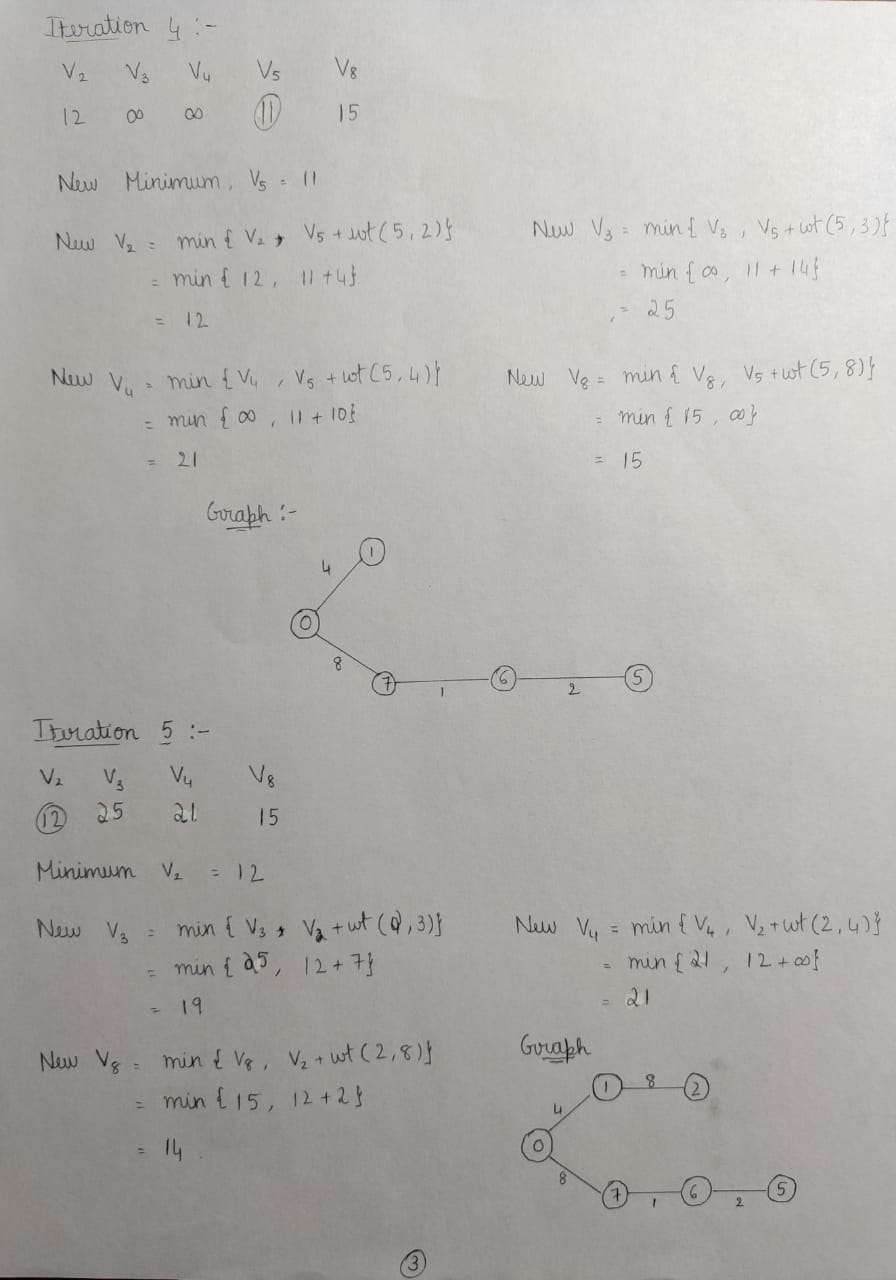 Iteration 4 :-
V2 V3 V4 V5 V8
12 ∞ ∞ 11 15
New Minimum, V5 = 11
New V2 = min { V2, V5 + wt(5,2)}
= min { 12, 11+4}
= 12
New V3 = min { V3, V5 + wt(5,3)}
= min { ∞, 11 + 14}
= 25
New V4 = min { V4, V5 + wt(5,4)}
= min { ∞, 11 + 10}
= 21
New V8 = min { V8, V5 + wt(5,8)}
= min { 15, ∞}
= 15
Graph :-
1
4
0
8
7 1 6 2 5
Iteration 5 :-
V2 V3 V4 V8
12 25 21 15
Minimum V2 = 12
New V3 = min { V3, V2 + wt(2,3)}
= min { 25, 12 + 7}
= 19
New V4 = min { V4, V2 + wt(2,4)}
= min { 21, 12 + ∞}
= 21
New V8 = min { V8, V2 + wt(2,8)}
= min { 15, 12 + 2}
= 14
Graph
1 8 2
4
0
8
7 1 6 2 5
3